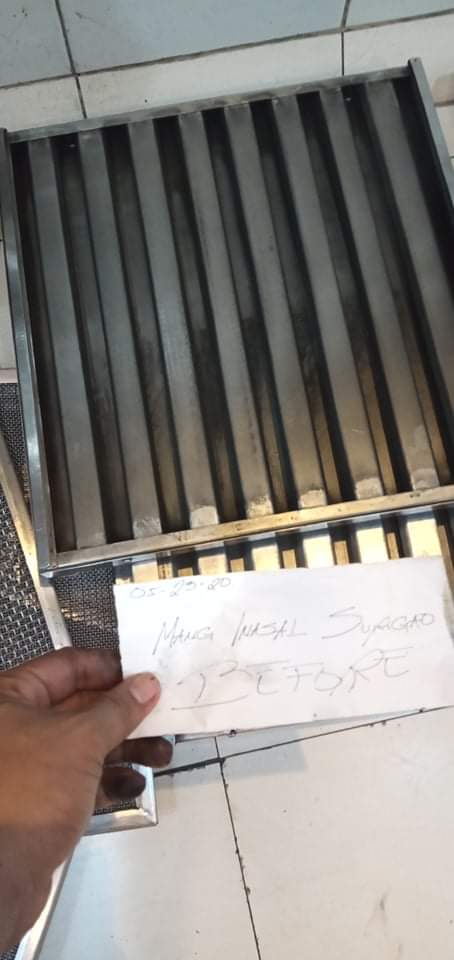 05-23-20
MANG INASAL SURIGAO
BEFORE